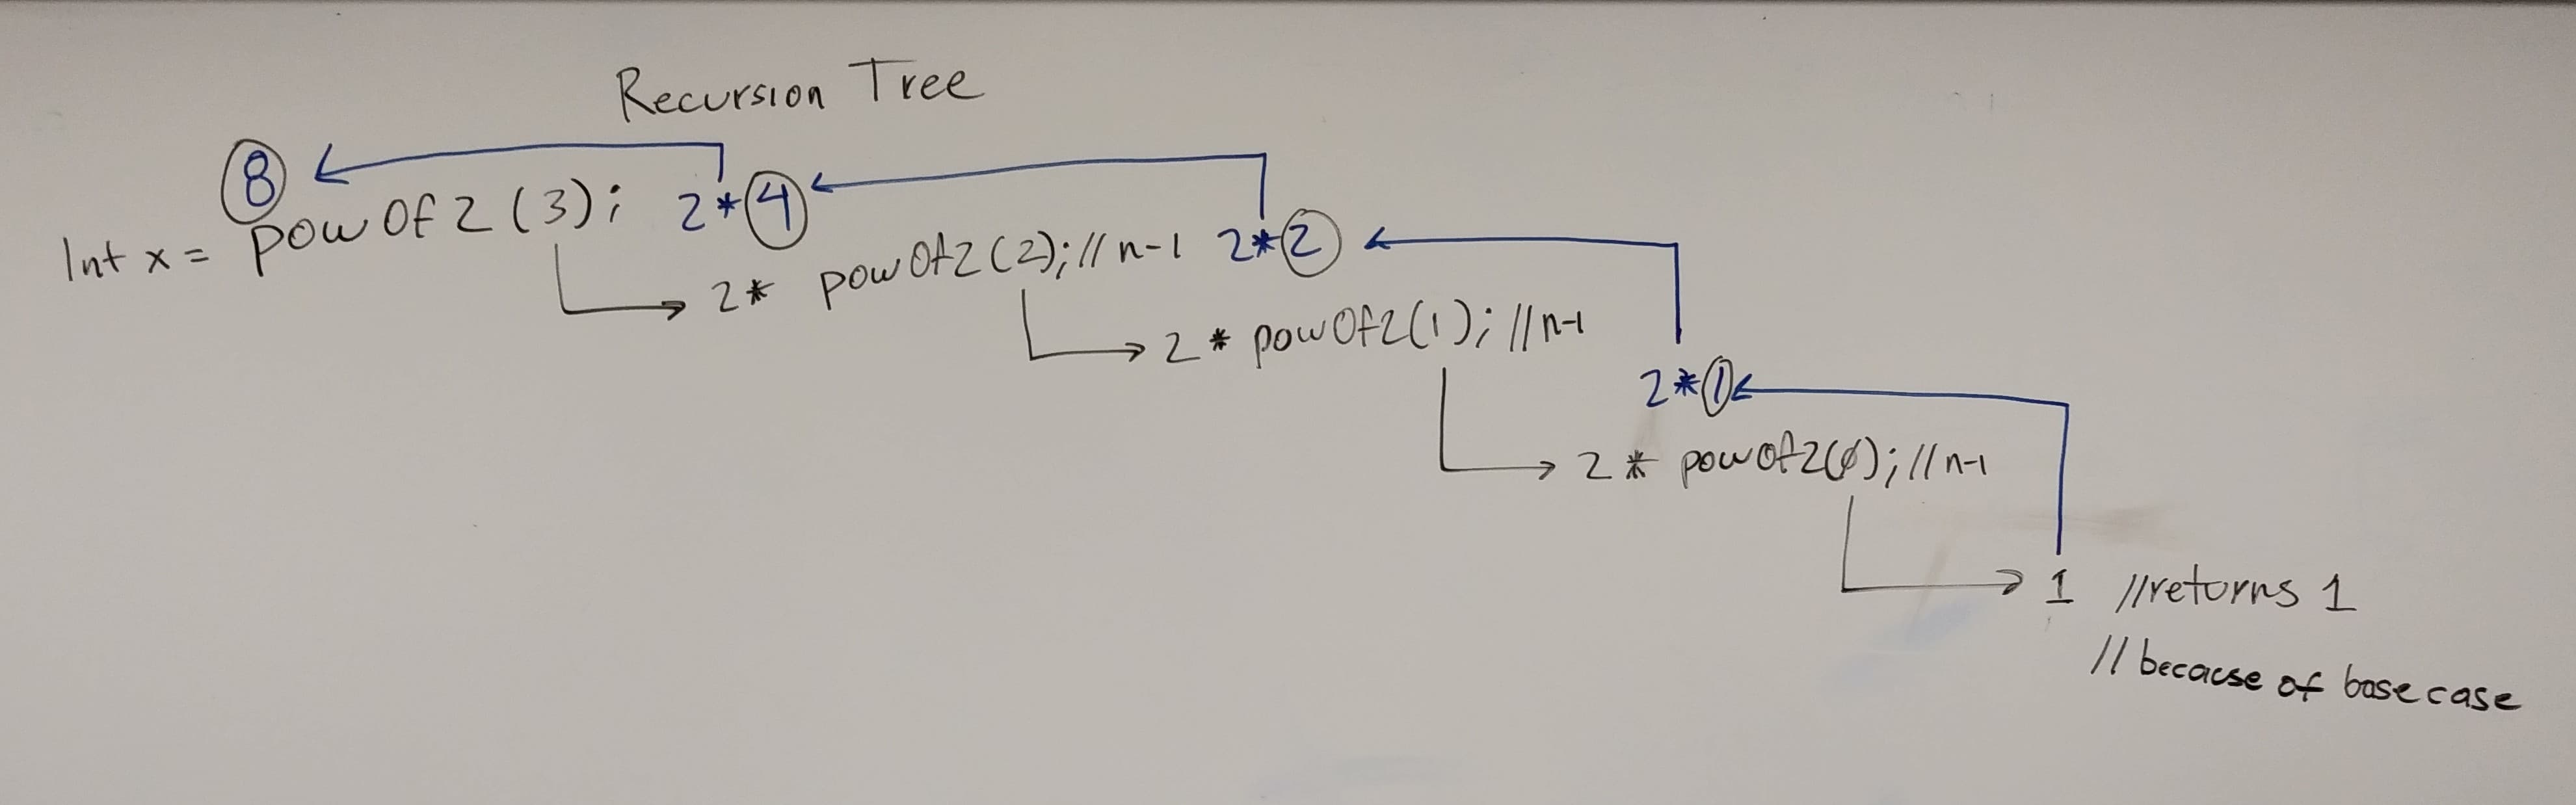 Recursion Tree
8
Int x = powOf2(3); 2*4
2* powOf2(2); //n-1 2*2
2 * powOf2(1); //n-1
2*1
2 * powOf2(0); //n-1
1 //returns 1
//because of base case